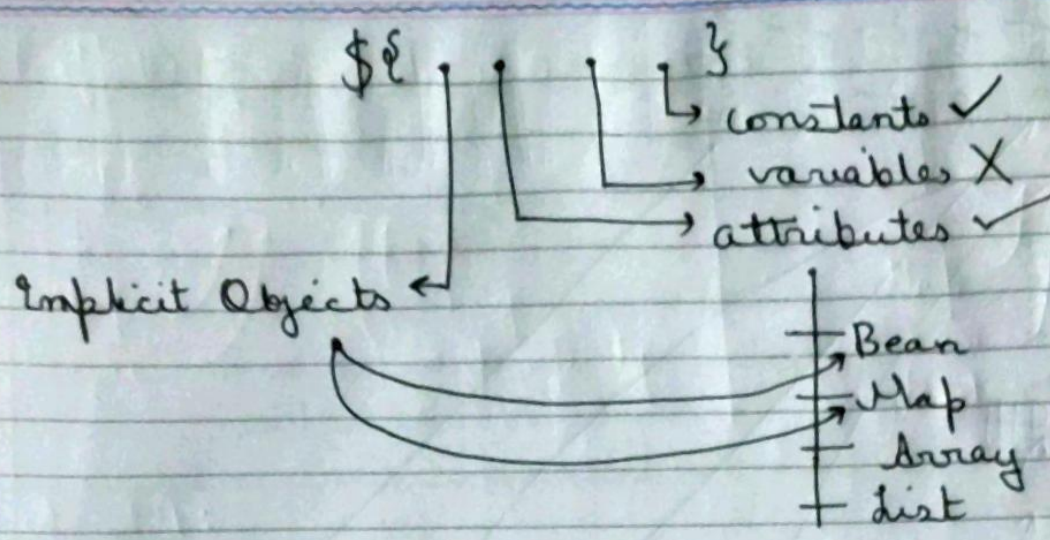 ${ }
constants ✓
variables X
attributes ✓
Implicit Objects
Bean
Map
Array
List